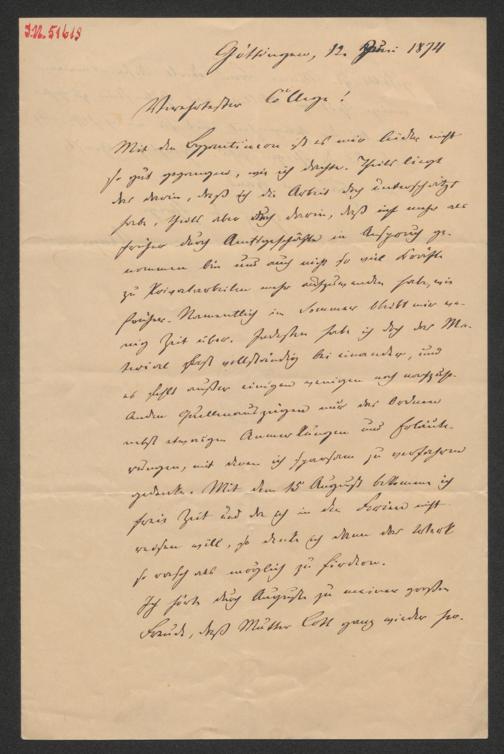 J.N. 51613
Göttingen, 12. Juni 1874
Verehrtester College!
Mit den Byzantinern ist es mir leider nicht
so gut gegangen, wie ich dachte. Theils liegt
das darin, daß ich die Arbeit doch unterschätzt
habe, theils aber auch darin, daß ich mehr als
früher durch Amtsgeschäfte in Anspruch ge-
nommen bin und auch nicht so viel Kräfte
zu Privatarbeiten mehr aufzuwenden habe, wie
früher. Namentlich im Sommer bleibt mir we-
nig Zeit über. Indessen habe ich doch das Ma-
terial fast vollständig bei einander, und
es fehlt außer einigen wenigen noch
Quellenauszügen nur das Ordnen
nebst etwaigen Anmerkungen und Erläute-
rungen, mit denen ich sparsam zu verfahren
gedenke. Mit dem 15 August bekomme ich
freie Zeit und da ich in den Ferien nicht
reisen will, so denke ich dann das Werk
so rasch als möglich zu fördern.
Ich hörte durch Auguste zu meiner großen
Freude, daß Mutter Cott ganz wieder her-